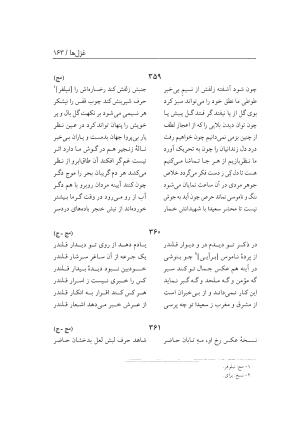 غزل‌ها / ۱۶۳
۳۵۹
(مج)
چون شود آشفته زلفش از نسیم بی‌خبر
جنبش زلفش کند رخساره‌اش را [نیلفر]۱
طوطی ما نطق خود را می‌تواند سبز کرد
حرف شیرینش کند چوب قفس را نیشکر
بوی گل از پا نیفتد گر فتد گل پیش پا
هر نسیمی می‌شود بر نکهت گل بال و پر
چون توان دیدن بلایی را که از اعجاز لطف
خویش را پنهان تواند کرد در عین نظر
از چنین بزمی نمی‌دانیم چون خواهیم رفت
یار بی‌پروا جهان بدمست و ساقی بی‌خبر
درد دل زندانیان را چون به تحریک آورد
نالهٔ زنجیر هم در گوش ما دارد اثر
ما نظربازیم از هر جا تماشا می‌کنیم
نیست غم گر افکند آن طاق‌ابرو از نظر
هست تا دل یکی ز دست فکر می‌گردد خلاص
می‌کشد هر دم گریبان بحر را موج دگر
جوهر مردی در آن ساعت نمایان می‌شود
چون کنند آیینه مردان روبرو با هم دگر
سنگ و ناموسی نماند حرص چون آید به جوش
آب از رو می‌رود در وقت گرما بیشتر
نیست تا محشر سعیدا با شهیدانش خمار
خورده‌اند از نیش خنجر باده‌های دردسر
۳۶۰
(مج - ج)
در ذکر تو دیدم در و دیوار قلندر
یادم دهد از روی تو دیدار قلندر
از پردهٔ ناموس [برآیی]۲ چو بنوشی
یک جرعه از آن ساغر سرشار قلندر
در آینه هم عکس جمال تو کند سیر
خودبین نبود دیدهٔ بیدار قلندر
گه مؤمن و گه ملحد و گه گبر نماید
کس را خبری نیست ز اسرار قلندر
این کار نمی‌داند و از بی‌بصری‌هاست
هر کس کند اقرار به انکار قلندر
از مشرق و مغرب ز سعیدا تو چه پرسی
از عرش خبر می‌دهد اشعار قلندر
۳۶۱
(مج - ج)
نسخهٔ عکس رخ او، مه تابان حاضر
شاهد حرف لبش لعل بدخشان حاضر
۱- مج: نیلوفر.
۲- نسخ: برای.